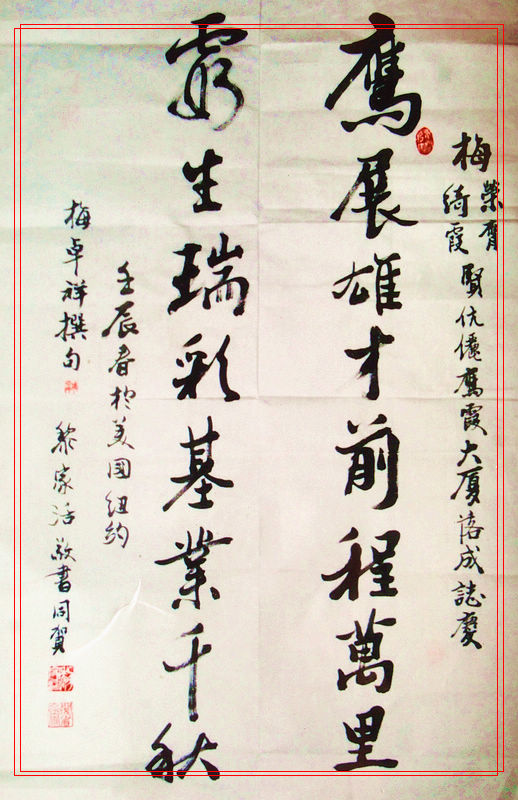 梅榮膺
綺霞賢伉儷鷹霞大厦落成誌慶
鷹展雄才前程萬里
霞生瑞彩基業千秋
壬辰春於美國紐約
梅卓祥撰句
黎家活敬書同賀